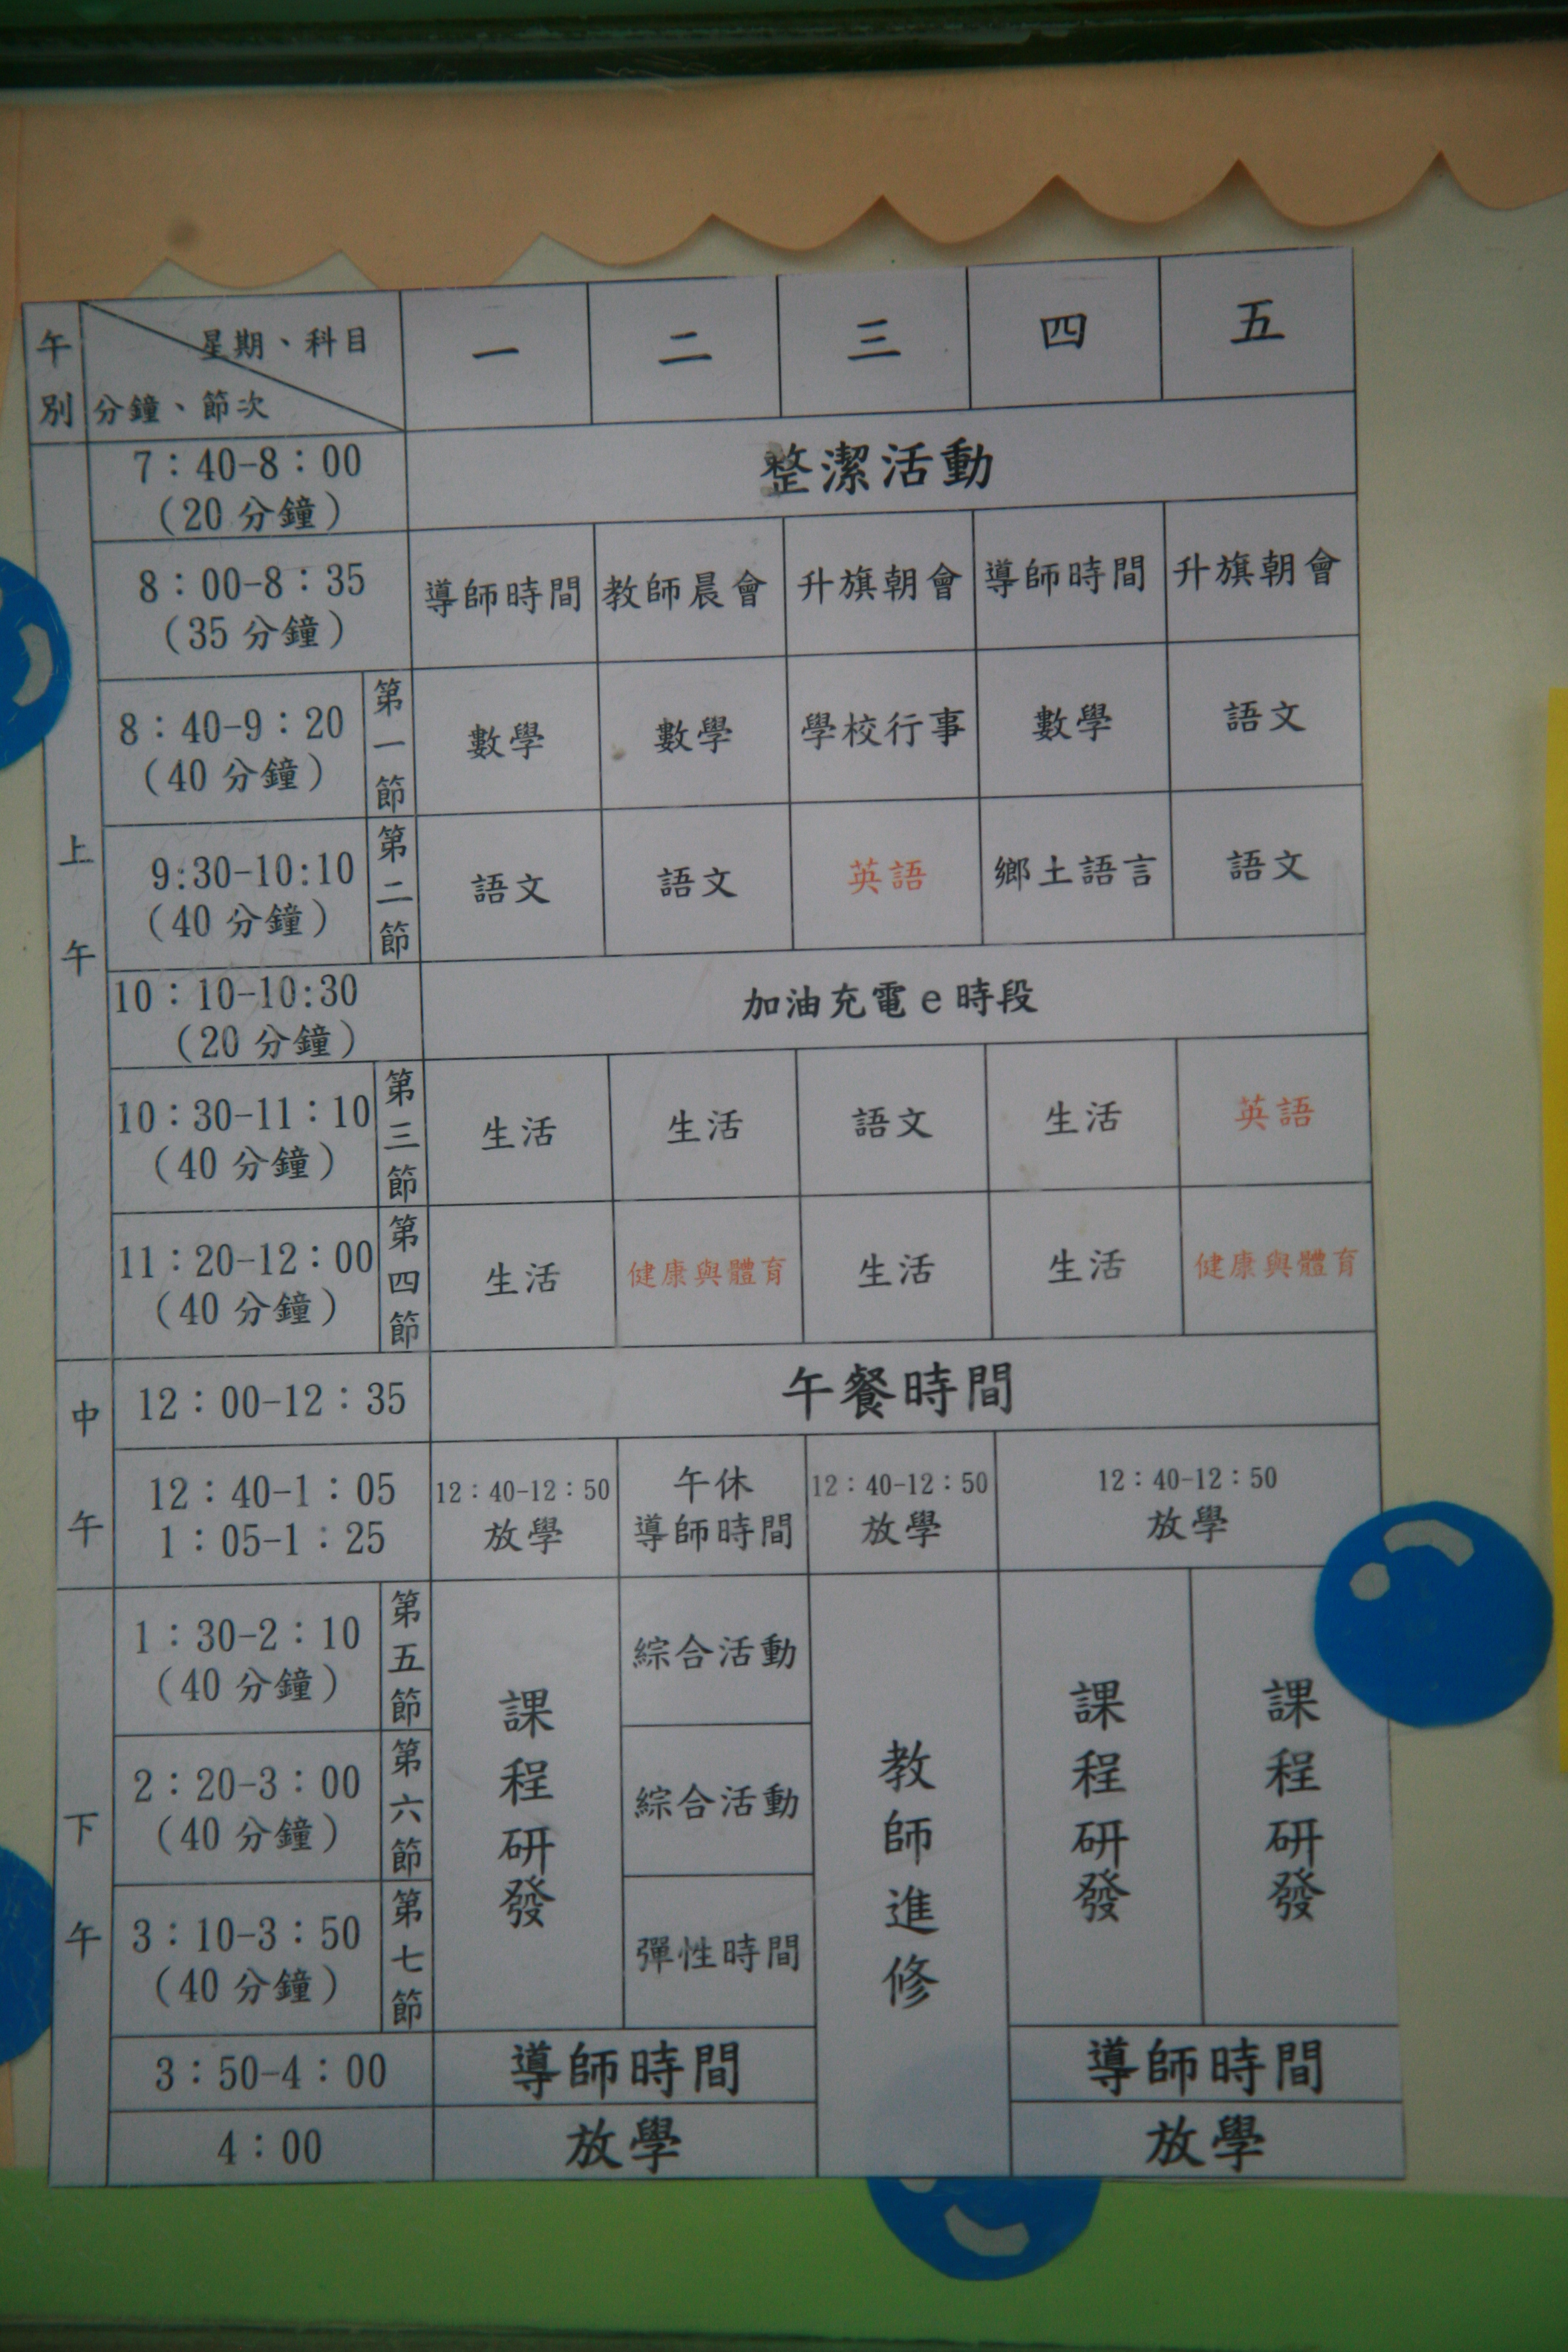 午別
星期、科目
分鐘、節次
一 二 三 四 五
上午
7：40-8：00
(20 分鐘)
整潔活動
8：00-8：35
(35 分鐘)
導師時間 教師晨會 升旗朝會 導師時間 升旗朝會
8：40-9：20
(40 分鐘)
第一節
數學 數學 學校行事 數學 語文
9:30-10:10
(40 分鐘)
第二節
語文 語文 英語 鄉土語言 語文
10：10-10:30
(20 分鐘)
加油充電 e 時段
10：30-11：10
(40 分鐘)
第三節
生活 生活 語文 生活 英語
11：20-12：00
(40 分鐘)
第四節
生活 健康與體育 生活 生活 健康與體育
中午
12：00-12：35
午餐時間
12：40-1：05
1：05-1：25
12：40-12：50
放學
午休
導師時間
12：40-12：50
放學
12：40-12：50
放學
下午
1：30-2：10
(40 分鐘)
第五節
課程研發
綜合活動
教師進修
課程研發
課程研發
2：20-3：00
(40 分鐘)
第六節
綜合活動
3：10-3：50
(40 分鐘)
第七節
彈性時間
3：50-4：00
導師時間 導師時間
4：00
放學 放學